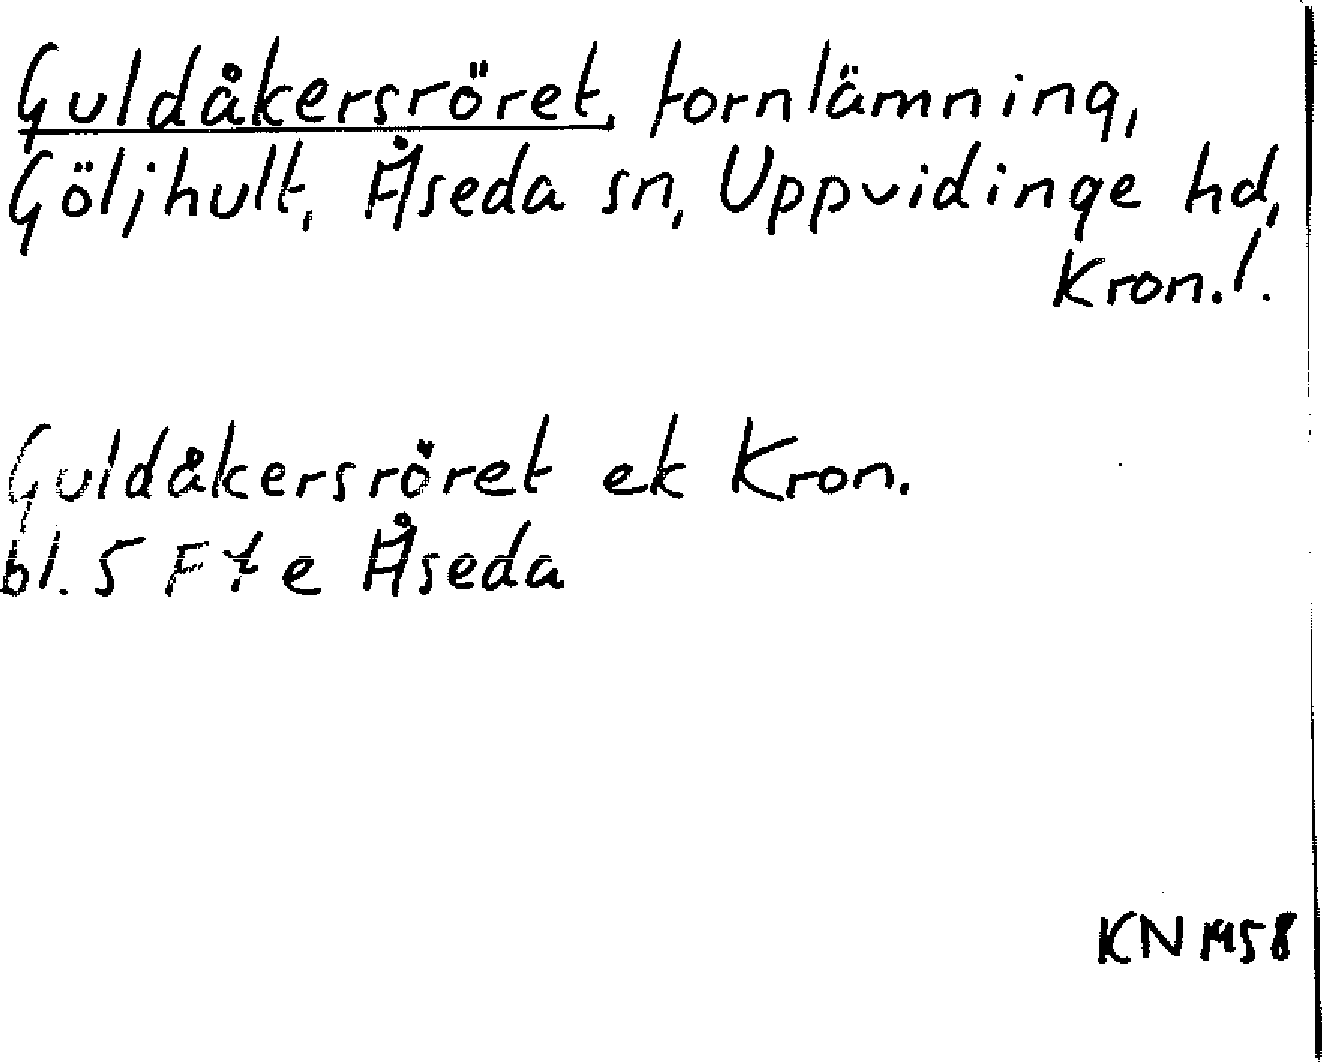 Guldåkersröret, fornlämning,
Göljhult, Åseda sn, Uppvidinge hd,
Kron. l.
Guldåkersröret ek Kron.
bl. 5 F 7 e Åseda
KN 1958